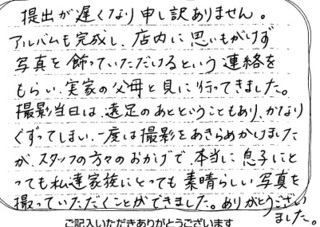 提出が遅くなり申し訳ありません。
アルバムも完成し、店内に思いもかけず
写真を飾っていただけるという連絡を
もらい、実家の父母と見に行ってきました。
撮影当日は、遠足のあとということもあり、かなり
ぐずってしまい、一度は撮影をあきらめかけました
が、スタッフの方々のおかげで、本当に息子にと
っても私達家族にとっても素晴らしい写真を
撮っていただくことができました。ありがとうござい
ました。
ご記入いただきありがとうございます